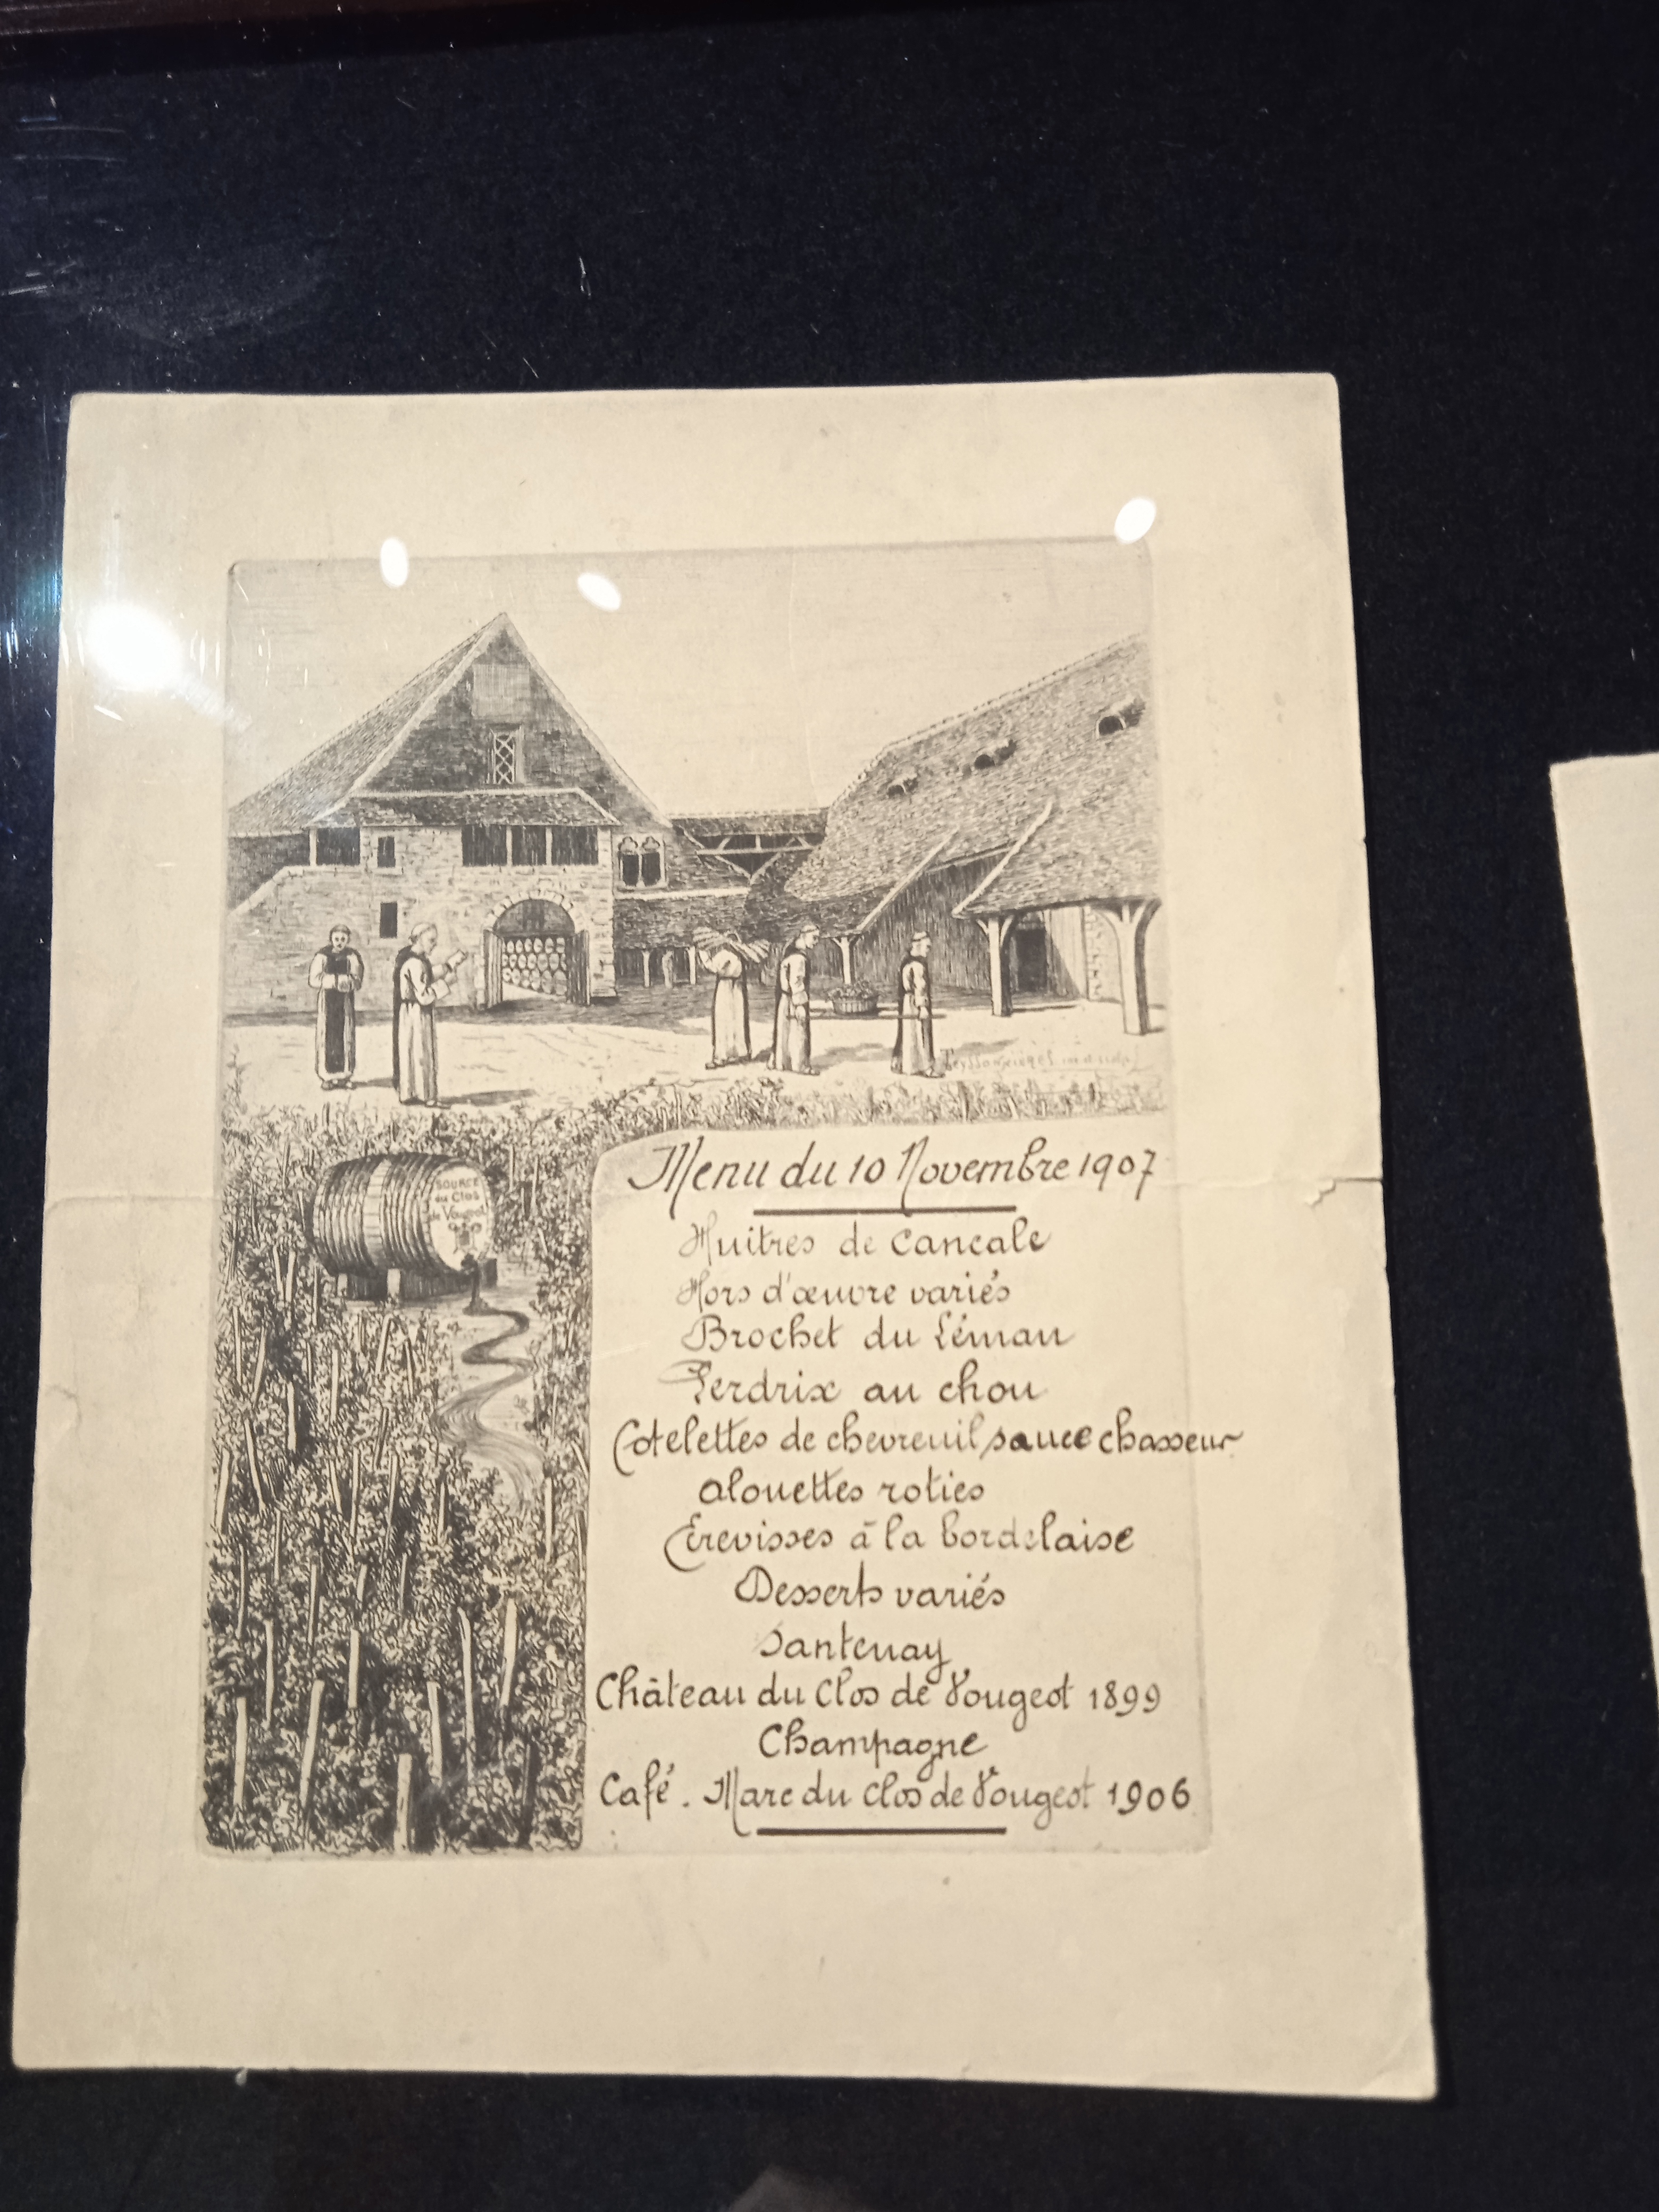 SOURCE
du Clos
de Vougeot
Menu du 10 Novembre 1907
Huitres de Cancale
Hors d'œuvre variés
Brochet du Léman
Perdrix au chou
Cotelettes de chevreuil sauce chasseur
Alouettes roties
Ecrevisses à la bordelaise
Desserts variés
Santenay
Château du Clos de Vougeot 1899
Champagne
Café. Marc du Clos de Vougeot 1906